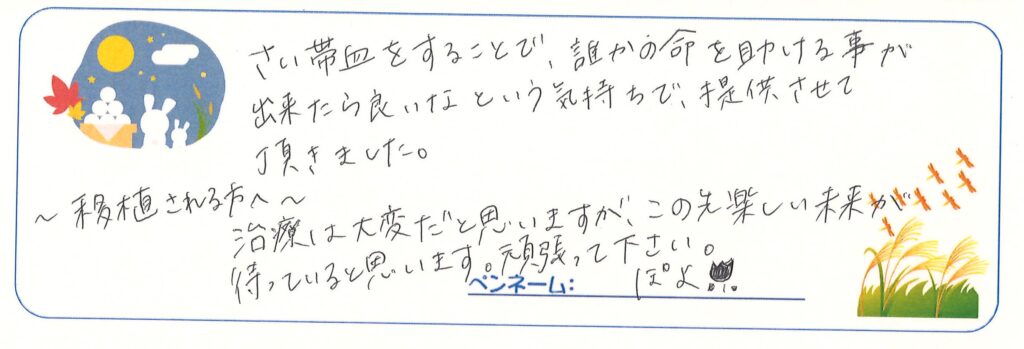 さい帯血をすることで、誰かの命を助ける事が
出来たら良いなという気持ちで、提供させて
頂きました。
～移植される方へ～
治療は大変だと思いますが、この先楽しい未来が
待っていると思います。頑張って下さい。
ペンネーム: ぽよ